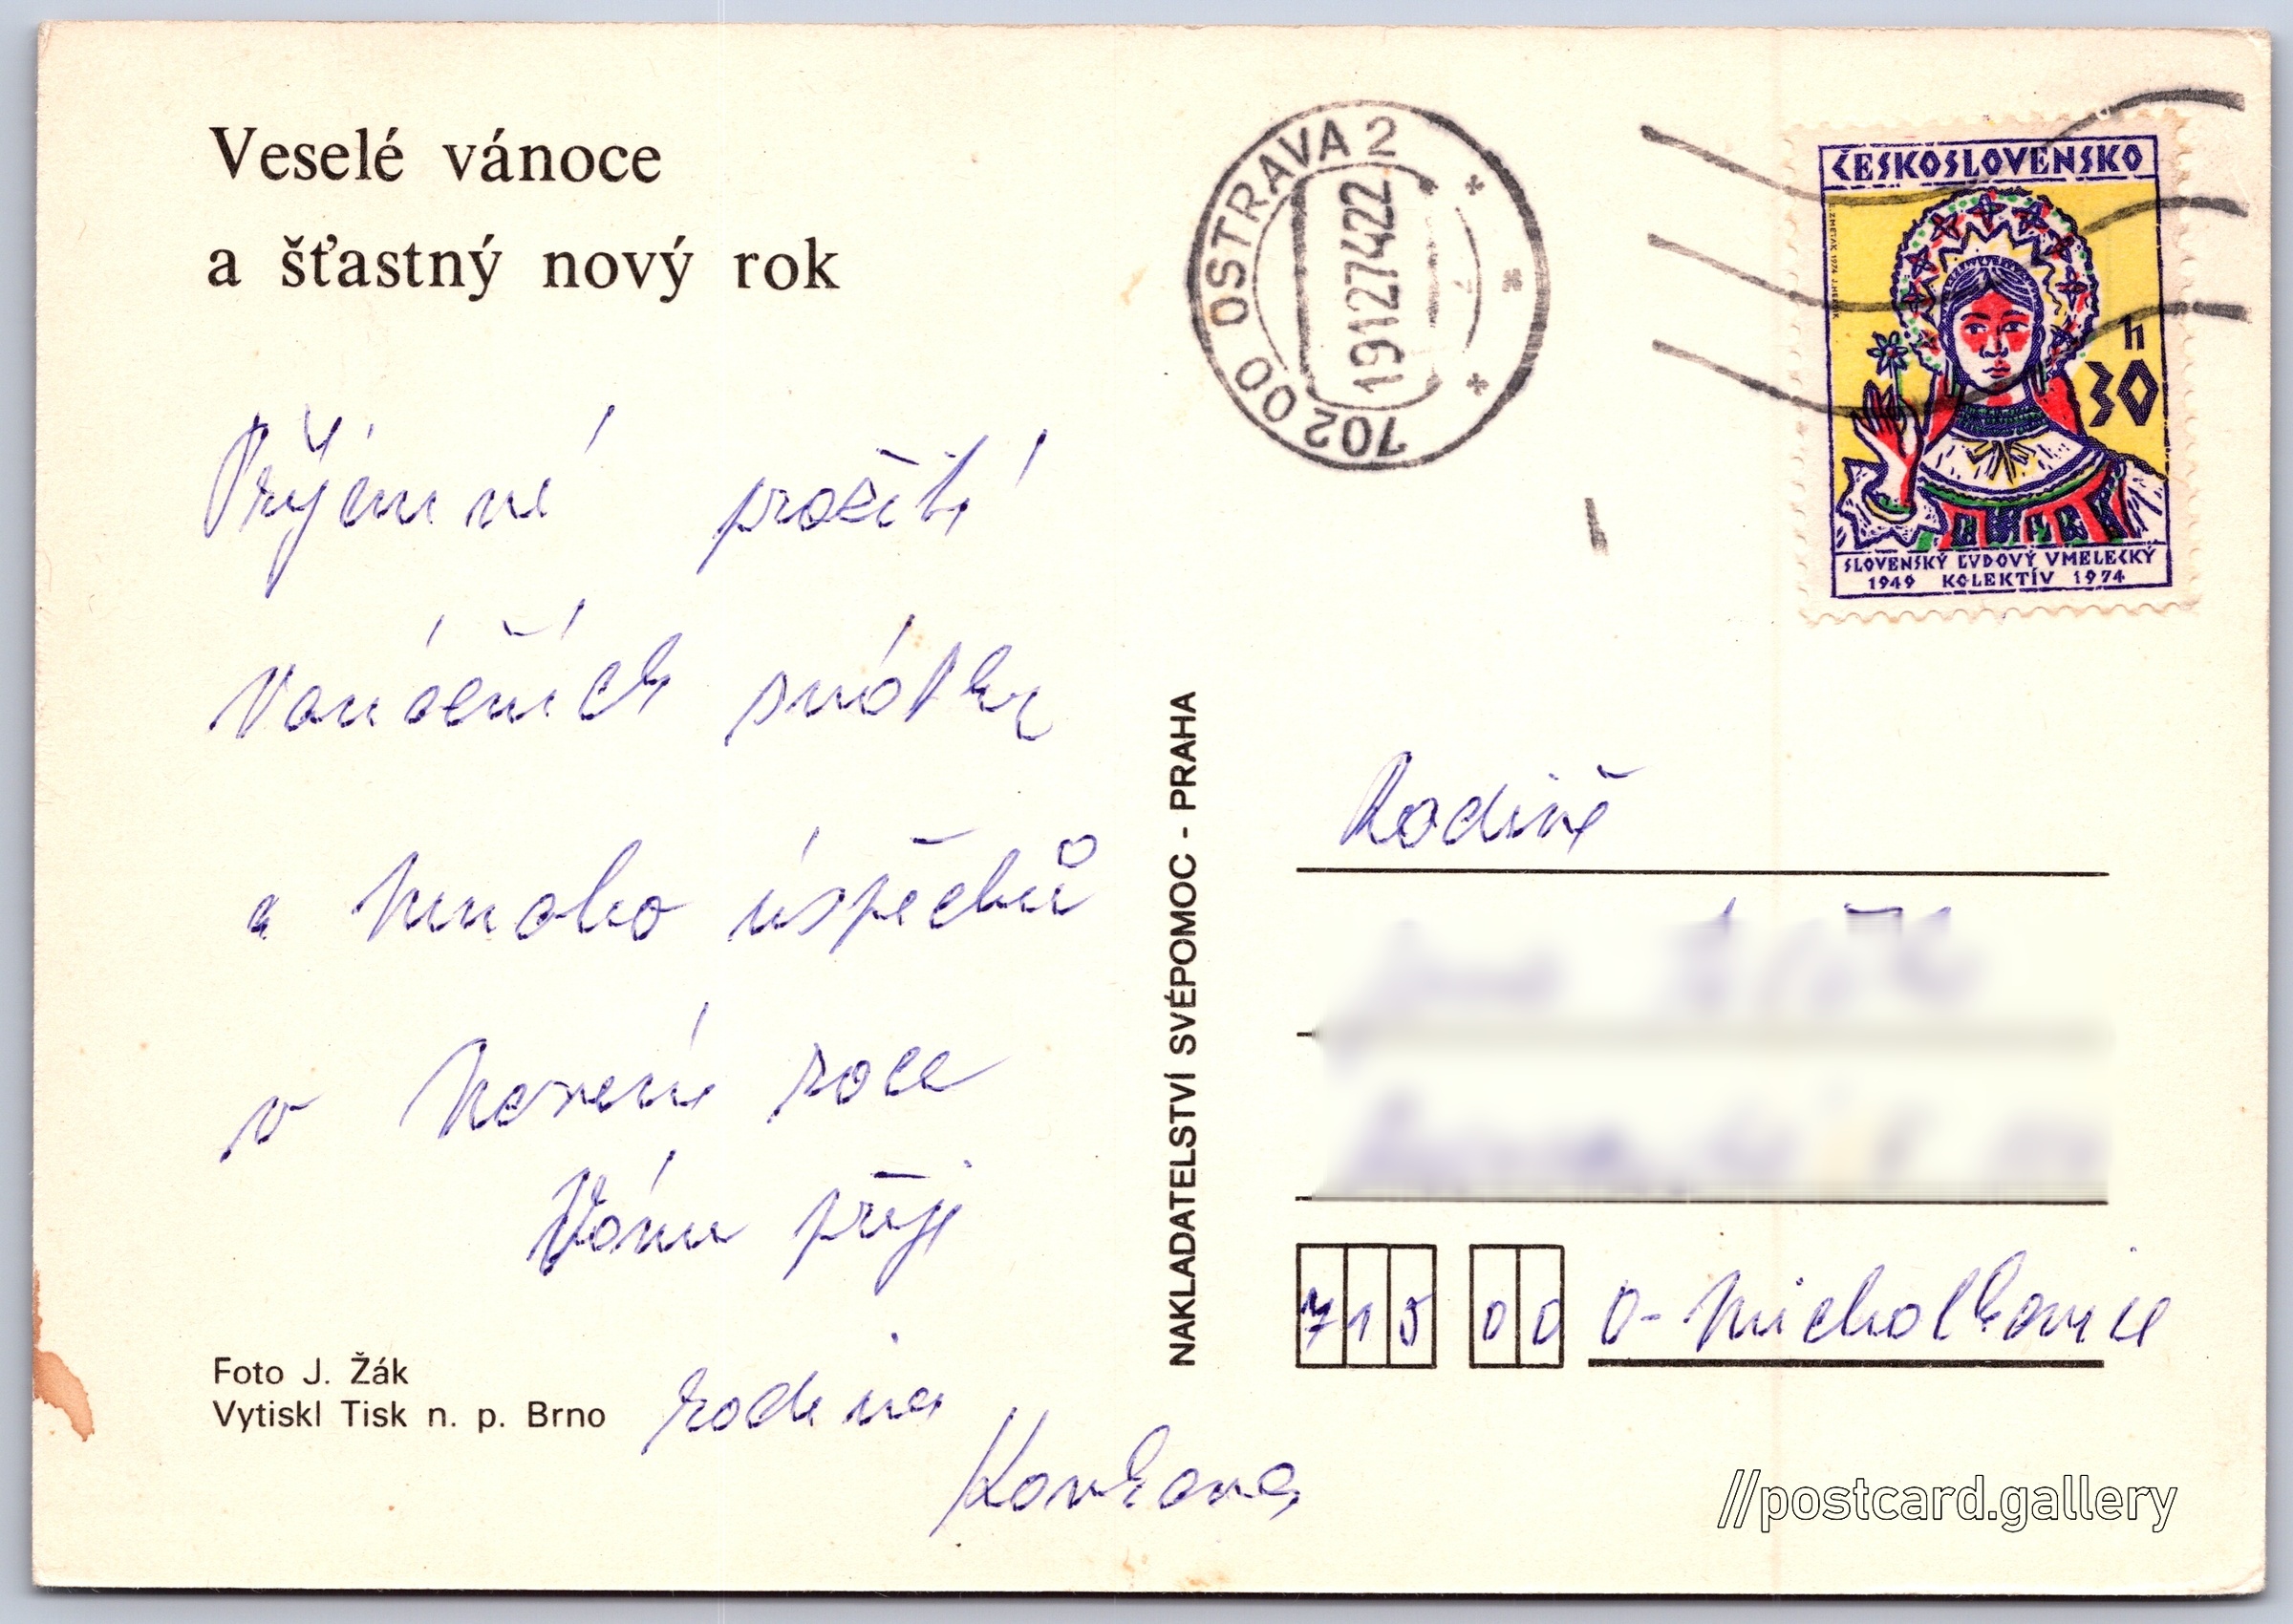 Veselé vánoce
a šťastný nový rok
Příjemné prožití
vánočních svátků
a mnoho úspěchů
v novém roce
Vám přeje
rodina
NAKLADATELSTVÍ SVÉPOMOC - PRAHA
Foto J. Žák
Vytiskl Tisk n. p. Brno
702 00 OSTRAVA 2
19127422
ČESKOSLOVENSKO
h
30
SLOVENSKÝ ĽUDOVÝ UMELECKÝ
1949 KOLEKTÍV 1974
Rodině
715 00 O-Michálkovice
//postcard.gallery